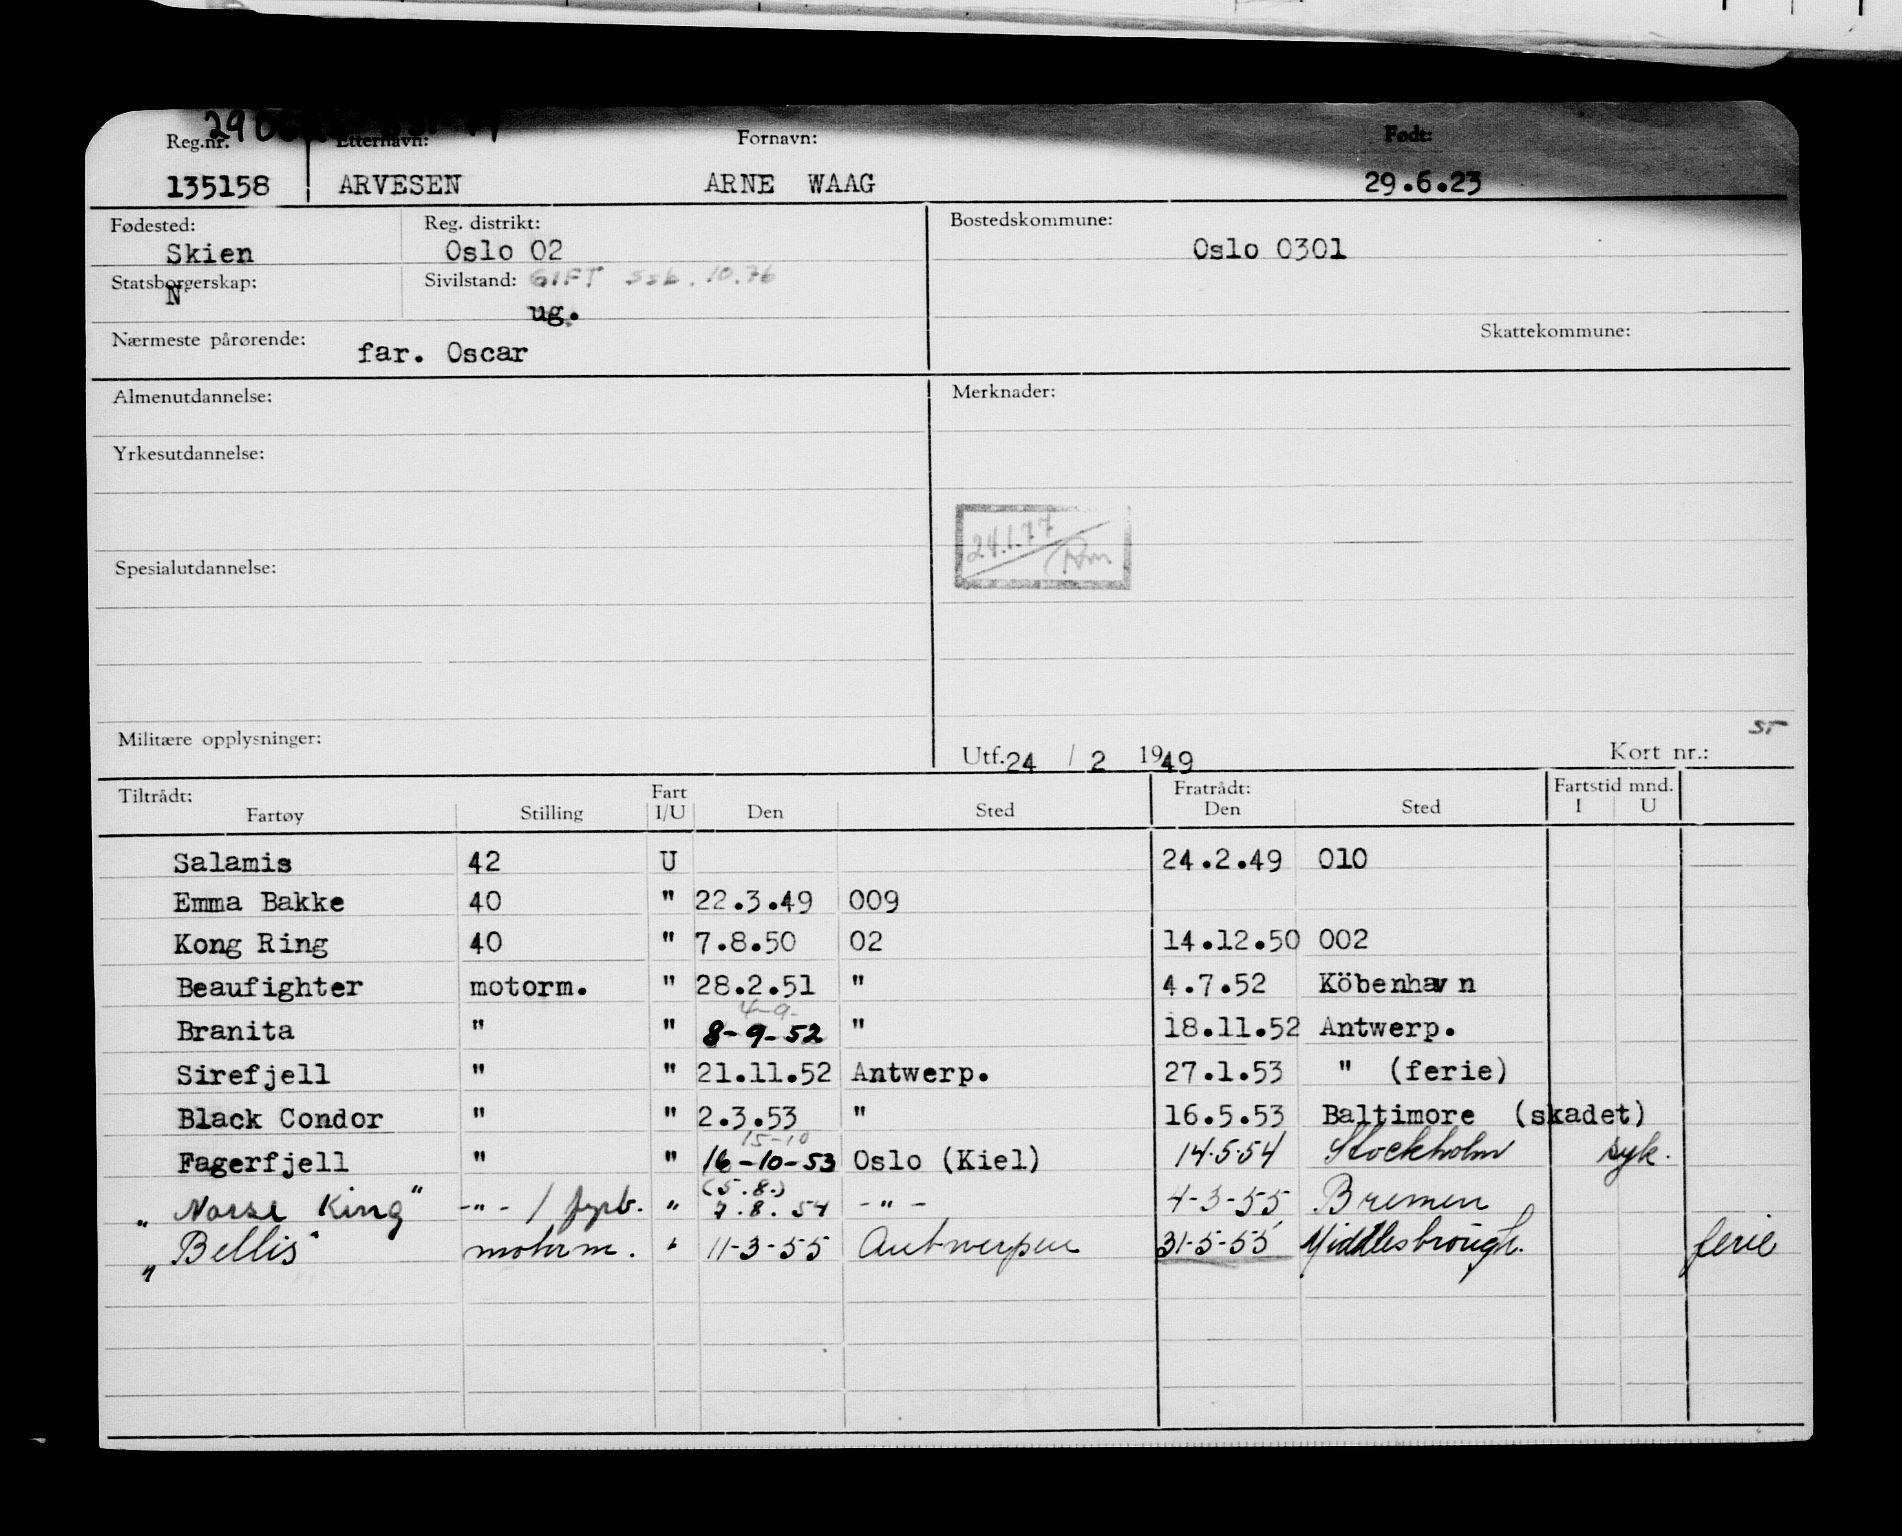 Reg.nr. Etternavn: Fornavn: Født:
135158 ARVESEN ARNE WAAG 29.6.23
Fødested: Reg. distrikt: Bostedskommune:
Skien Oslo 02 Oslo 0301
Statsborgerskap: Sivilstand: GIFT SSB. 10.76
N ug.
Nærmeste pårørende: far. Oscar Skattekommune:
Almenutdannelse: Merknader:
Yrkesutdannelse:
24.1.77
Spesialutdannelse:
Militære opplysninger: Utf. 24 / 2 1949 Kort nr.:
Tiltrådt: Fart Fratrådt: Fartstid mnd.
Fartøy Stilling I/U Den Sted Den Sted I U
Salamis 42 U 24.2.49 010
Emma Bakke 40 " 22.3.49 009
Kong Ring 40 " 7.8.50 02 14.12.50 002
Beaufighter motorm. " 28.2.51 " 4.7.52 Köbenhavn
4-9-
Branita " " 8-9-52 " 18.11.52 Antwerp.
Sirefjell " " 21.11.52 Antwerp. 27.1.53 " (ferie)
Black Condor " " 2.3.53 " 16.5.53 Baltimore (skadet)
15-10
Fagerfjell " " 16-10-53 Oslo (Kiel) 14.5.54 Stockholm syk.
(5.8.)
„ Norse King" -"- / fyrb. " 7.8.54 -"- 4-3-55 Bremen
„ Bellis" motorm. " 11-3-55 Antwerpen 31-5-55 Middlesbrough. ferie